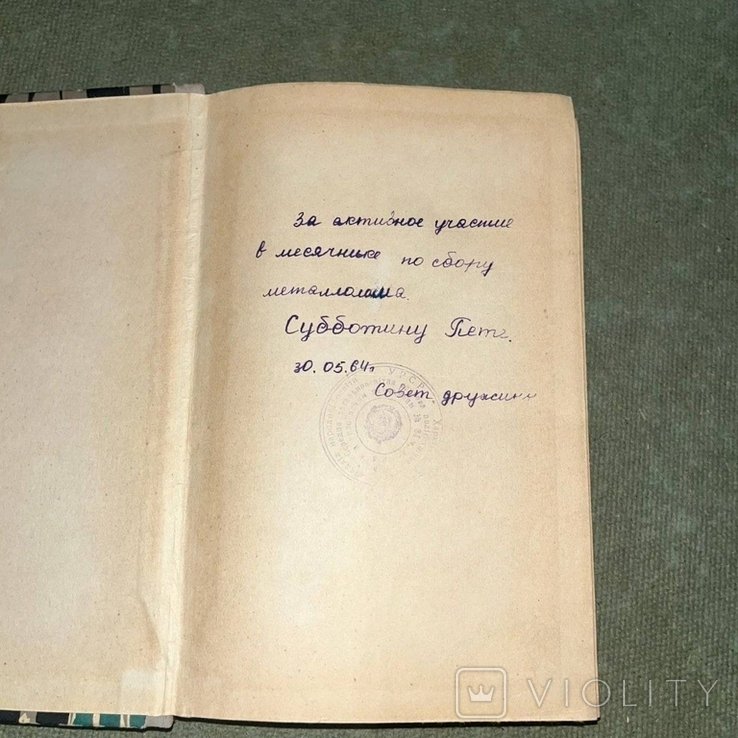 За активное участие
в месячнике по сбору
металлолома.
Субботину Пете.
30.05.64г
Совет дружины
УРСР
VIOLITY